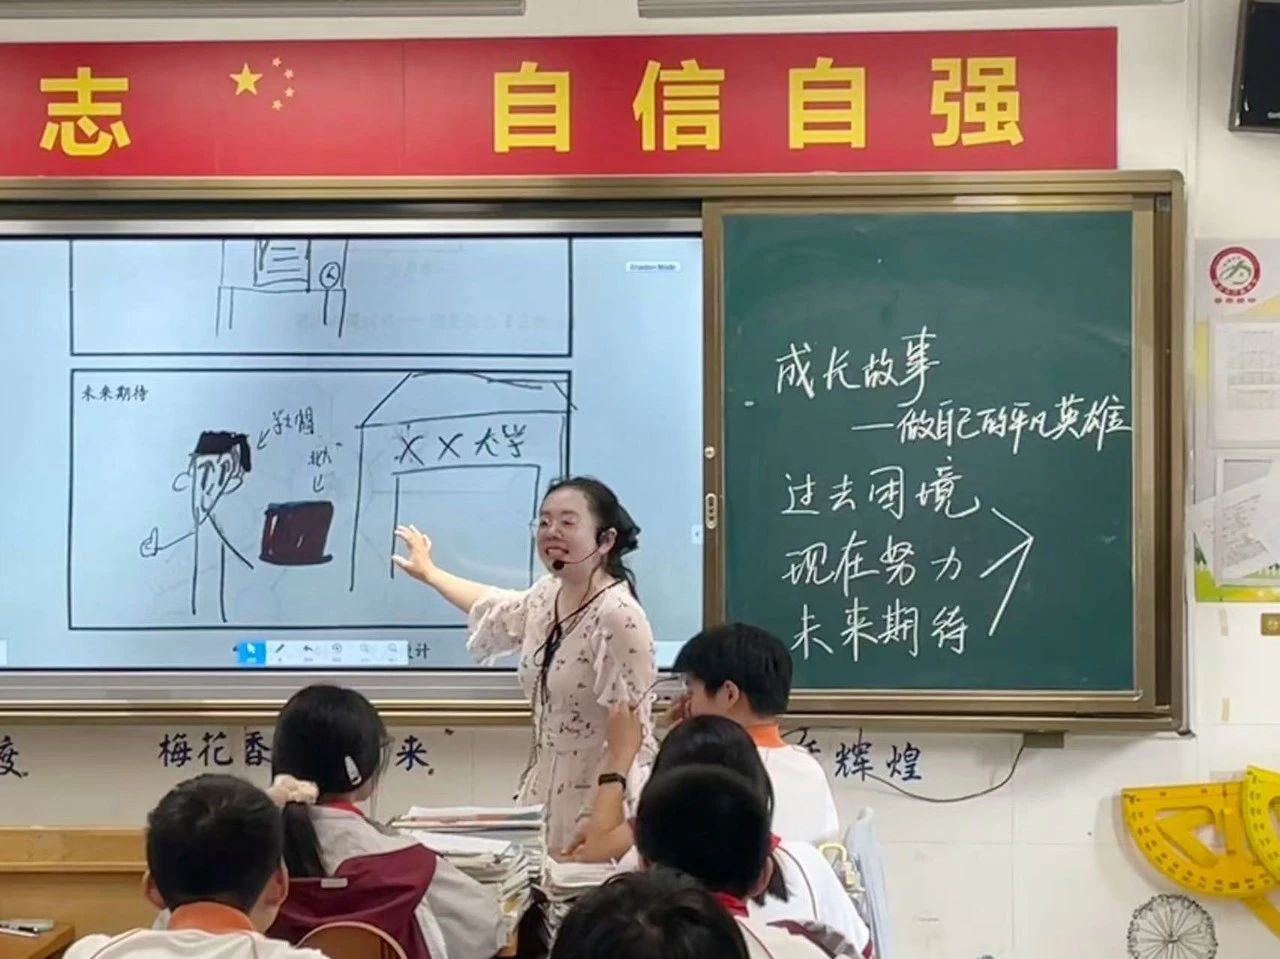 志 自信自强
Shadow Mode
未来期待
学士帽
XX大学
设计
成长故事
—做自己的平凡英雄
过去困境
现在努力
未来期待
梅花香
来
辉煌